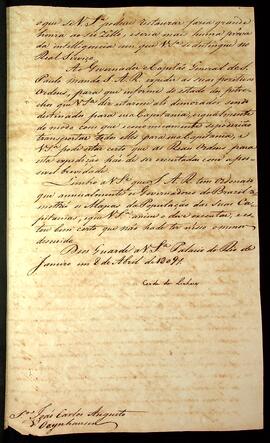 o que se V. Sª podesse restaurar faria grande
honra ao seu Zello, e seria mais huma prova
da intelligencia com que V. Sª se distingue no
Real Serviço.
Ao Governador e Capitão General de S.
Paulo manda S. A. R. expedir as suas positivas
Ordens, para que informe do estado dos petre-
chos que V. Sª diz estarem ali demorados sendo
destinados para essa Capitania, igualmente
do modo com que com
transportar todo elle para essa Capitania, e
V. Sª pode estar certo que as Reaes Ordens para
esta expedição hão de ser executadas com a pos-
sivel brevidade.
Lembro a V. Sª que S. A. R. tem Ordenado
que annualmente os Governadores do Brazil re-
mettão os Mapas da População das suas Ca-
pitanias, e que V. Sª o deve executar, e es-
tou bem certo que não hade ter nisso o menor
descuido.
Deos Guarde a V. Sª Palacio do Rio de
Janeiro em 8 de Abril de 1809
Conde de Linhares
Snr. João Carlos Augusto
d'Oeynhausen